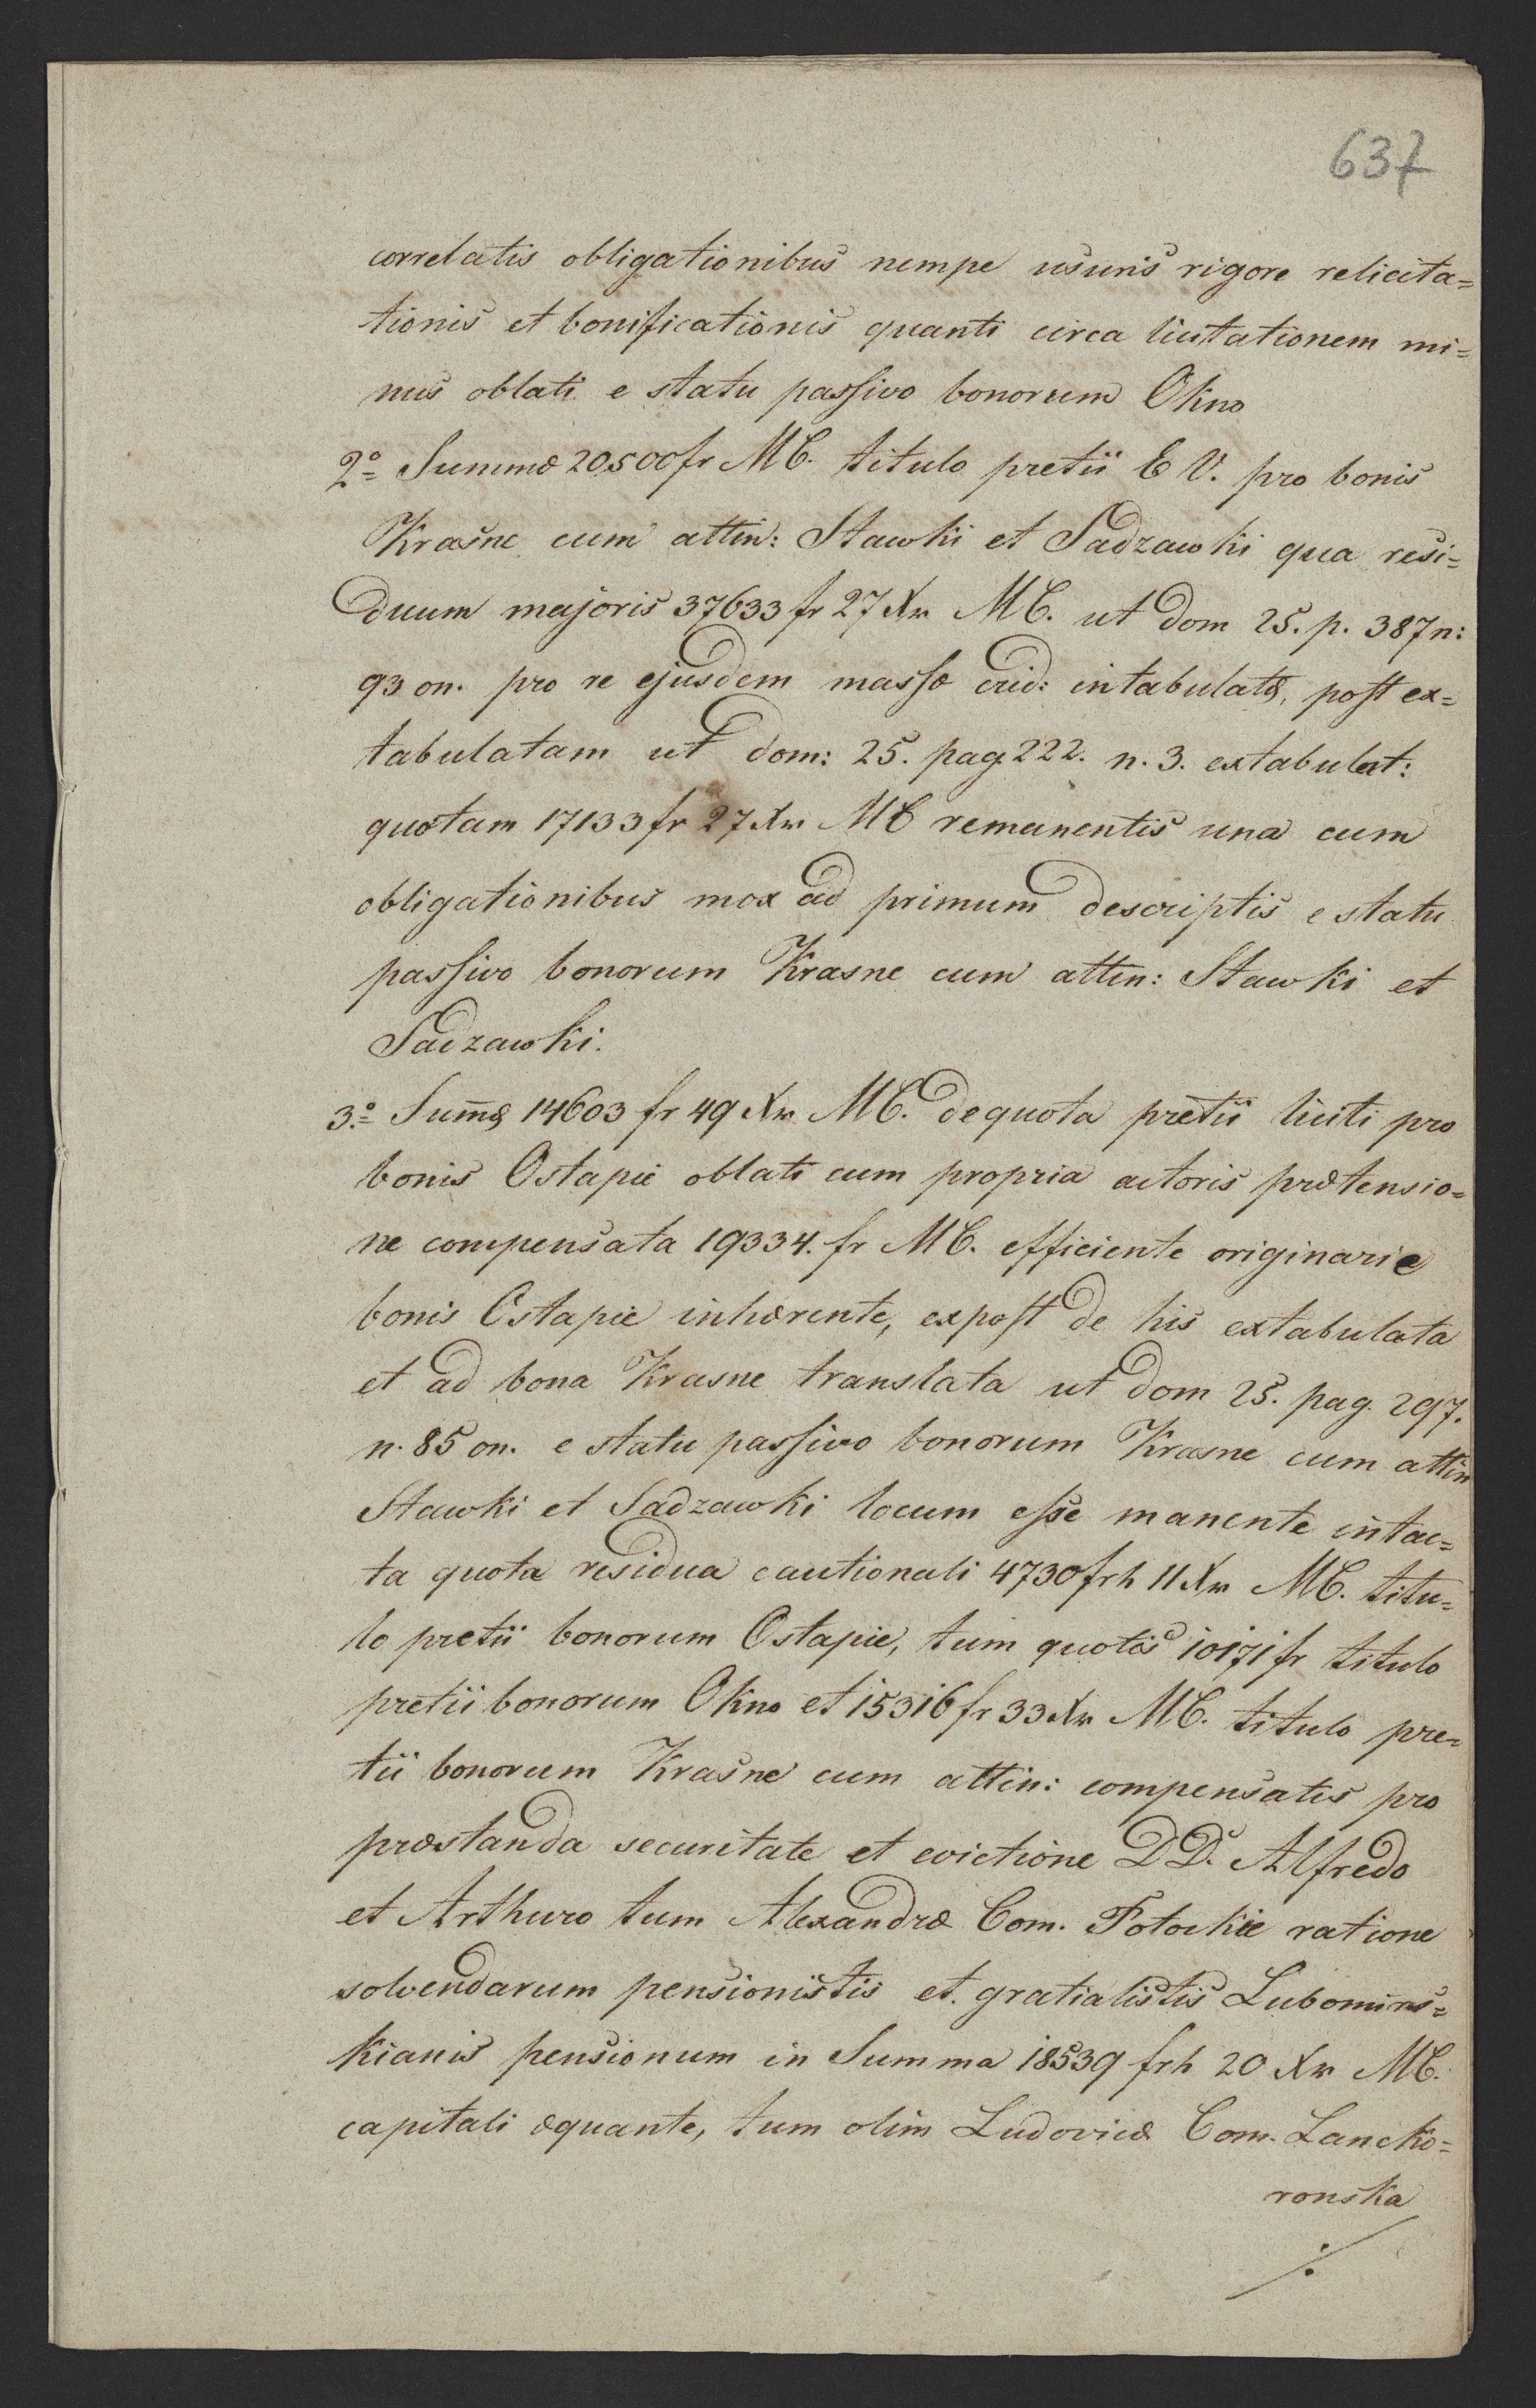 637
correlatis obligationibus nempe usuris rigore relicita=
tionis et bonificationis quanti circa licitationem mi=
nus oblati e statu passivo bonorum Okno
2º Summæ 20500 fr MC. titulo pretii E V. pro bonis
Krasne cum attin: Stawki et Sadzawki qua resi=
duum majoris 37633 fr 27 Xr MC. ut dom 25. p. 387 n:
93 on. pro re ejusdem massæ crid: intabulatæ, post ex=
tabulatam ut dom: 25. pag 222. n. 3. extabulat:
quotam 17133 fr 27 Xr MC remanentis una cum
obligationibus mox ad primum descriptis e statu
passivo bonorum Krasne cum attin: Stawki et
Sadzawki.
3º Sum̄æ 14603 fr 49 Xr MC. de quota pretii liciti pro
bonis Ostapie oblati cum propria actoris prætensio=
ne compensata 19334. fr MC. efficiente originarie
bonis Ostapie inhærente, expost de his extabulata
et ad bona Krasne translata ut dom 25. pag. 297.
n. 85 on. e statu passivo bonorum Krasne cum attin
Stawki et Sadzawki locum esse manente intac=
ta quota residua cautionali 4730 frh 11 Xr MC. titu=
lo pretii bonorum Ostapie, tum quotis 10171 fr titulo
pretii bonorum Okno et 15316 fr 33 Xr MC. titulo pre=
tii bonorum Krasne cum attin: compensatis pro
præstanda securitate et evictione DD. Alfredo
et Arthuro tum Alexandræ Com. Potockie ratione
solvendarum pensionistis et gratialistis Lubomirs=
kianis pensionum in Summa 18539 frh 20 Xr MC.
capitali æquante, tum olim Ludovicæ Com. Lancko=
ronska
./.